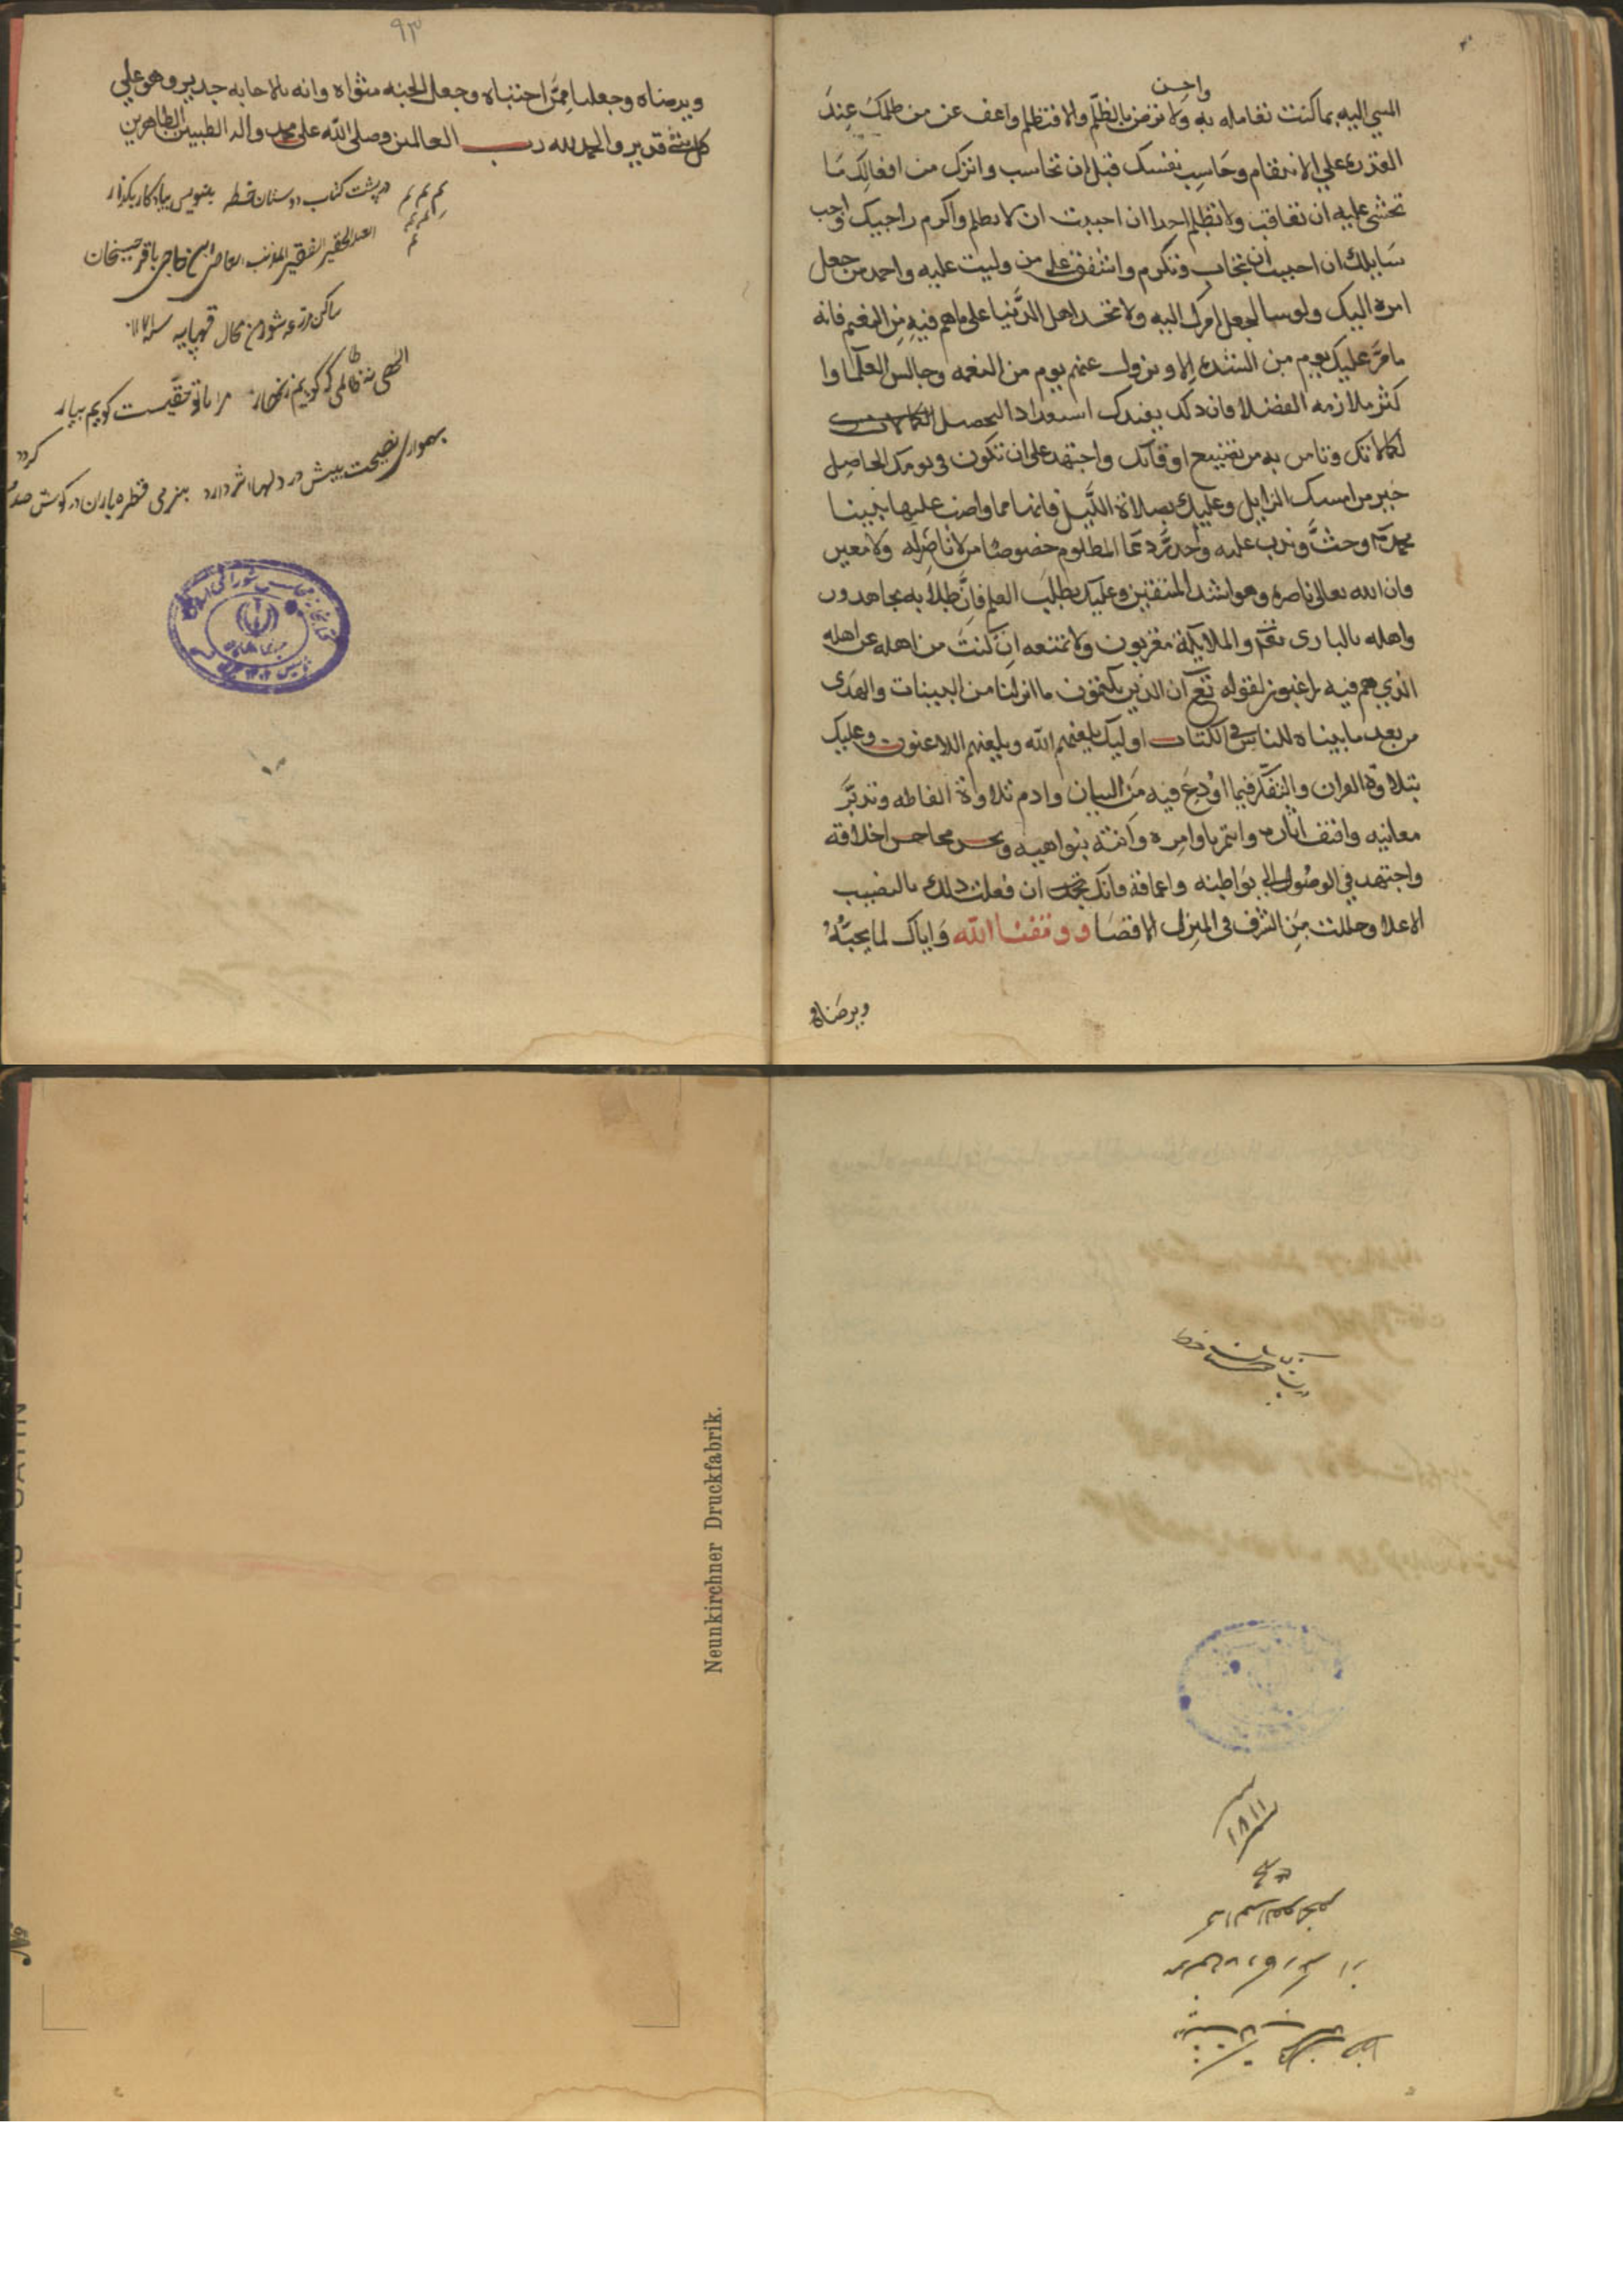 واحسن
المسي اليه بما كنت تعامله به ولا ترض بالظلم والا فتظلم واعف عن من ظلمك عند
القدرة على الانتقام وحاسب نفسك قبل ان تحاسب واترك من افعالك ما
تخشى عليه ان تعاقب ولا تظلم احدا ان احببت ان لا تظلم واكرم راجيك واجب
سايلك ان احببت ان تجاب وتكرم واشفق على من وليت عليه واحمد من جعل
امره اليك ولو سا لجعل امرك اليه ولا تحسد اهل الدنيا على ما هم فيه من النعيم فانه
ما مر عليك يوم من الشدة الا ويزول عنهم يوم من النعمه وجالس العلما وا
كثر ملازمه الفضلا فان ذلك يفيدك استعدادا لتحصل
لكمالاتك وتامن به من تضييع اوقاتك واجتهد على ان تكون في يومك الحاصل
خير من امسك الزايل وعليك بصلاة الليل فانها مما واضب عليها نبينا
محمد وحث وندب عليه واحذر دعا المظلوم خصوصا من لا ناصر له ولا معين
فان الله تعالى ناصره وهو اشد المنتقمين وعليك بطلب العلم فان طلابه مجاهدون
واهله بالباري تعم والملايكة مقربون ولا تمنعه ان كنت من اهله عن اهله
الذي هم فيه راغبون لقوله تع ان الذين يكتمون ما انزلنا من البينات والهدى
من بعد ما بيناه للناس في الكتاب اوليك يلعنهم الله ويلعنهم اللاعنون وعليك
بتلاوة القران والتفكر فيما اودع فيه من البيان وادم تلاوة الفاظه وتدبر
معانيه واقتف اثاره وائتمر باوامره وانته بنواهيه محاسن اخلاقه
واجتهد في الوصول الى بواطنه فانك ان فعلت ذلك بالنصيب
الاعلا وحللت من الشرف في المنزل الاقصا ووفقنا الله واياك لما يحبه
ويرضاه
٩٣
ويرضاه وجعلنا ممن اجتباه وجعل الجنه مثواه وانه بالاجابه جدير وهو على
كل شئ قدير والحمد لله رب العالمين وصلى الله على محمد واله الطيبين الطاهرين
تم تم تم در پشت كتاب دوستان خط بنويس بيادكار بكذار
العبد الحقير الفقير المذنب العاصي ابن حاجي باقر حسيخان
ساكن مزرعه من محال قهپايه
الهي نه ظالمي كه كويم زنهار مرا با تو حقيست كويم بيار
بهمواري نصيحت بيش در دلها اثر دارد بنرمي قطره باران در كوش صدف
Neunkirchner Druckfabrik.
١٨١١
№